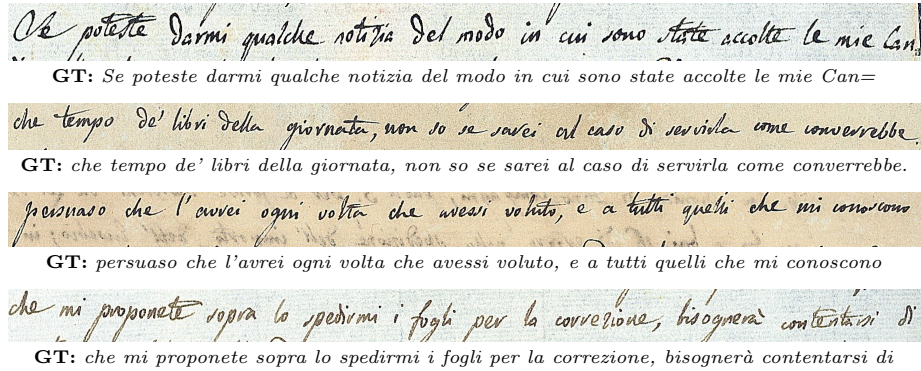 Se poteste darmi qualche notizia del modo in cui sono state accolte le mie Can
GT: Se poteste darmi qualche notizia del modo in cui sono state accolte le mie Can=
che tempo de' libri della giornata, non so se sarei al caso di servirla come converrebbe.
GT: che tempo de' libri della giornata, non so se sarei al caso di servirla come converrebbe.
persuaso che l'avrei ogni volta che avessi voluto, e a tutti quelli che mi conoscono
GT: persuaso che l'avrei ogni volta che avessi voluto, e a tutti quelli che mi conoscono
che mi proponete sopra lo spedirmi i fogli per la correzione, bisognerà contentarsi di
GT: che mi proponete sopra lo spedirmi i fogli per la correzione, bisognerà contentarsi di